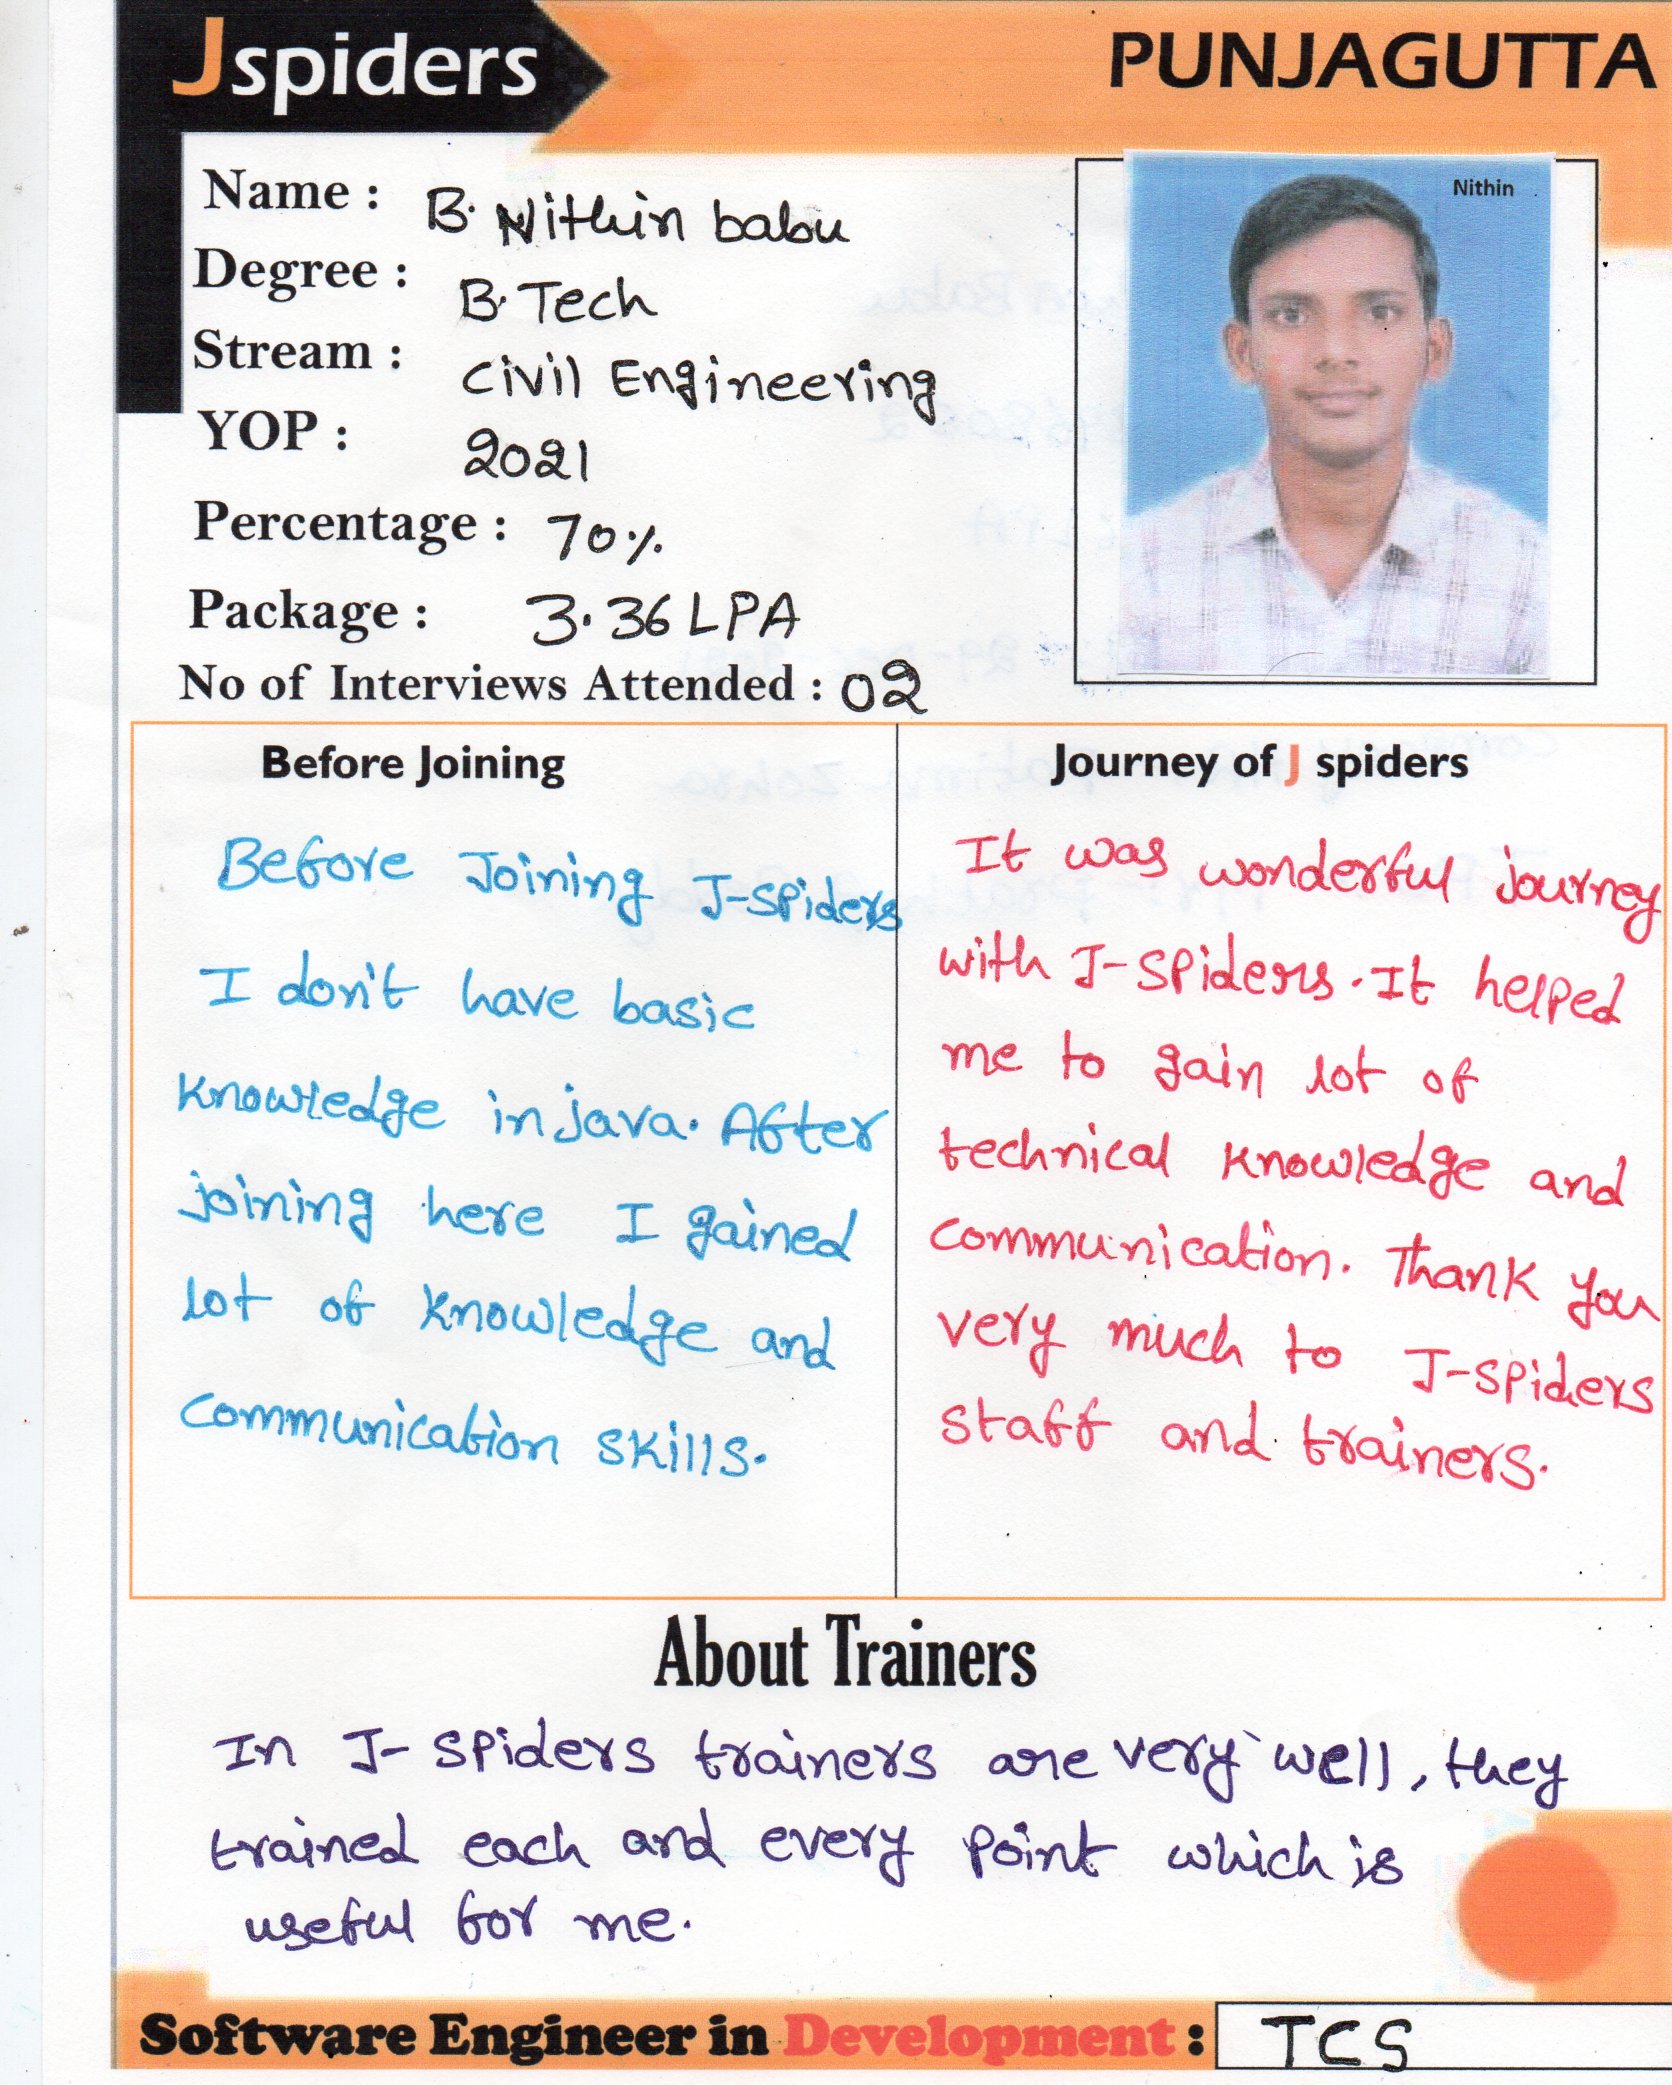 Jspiders
PUNJAGUTTA
Nithin
Name : B. Nithin babu
Degree : B.Tech
Stream : Civil Engineering
YOP : 2021
Percentage : 70%
Package : 3.36 LPA
No of Interviews Attended : 02
Before Joining
Before Joining J-spiders
I don't have basic
knowledge in java. After
joining here I gained
lot of knowledge and
communication skills.
Journey of J spiders
It was wonderful journey
with J-spiders. It helped
me to gain lot of
technical knowledge and
communication. Thank you
very much to J-spiders
staff and trainers.
About Trainers
In J-spiders trainers are very well, they
trained each and every point which is
useful for me.
Software Engineer in Development : TCS